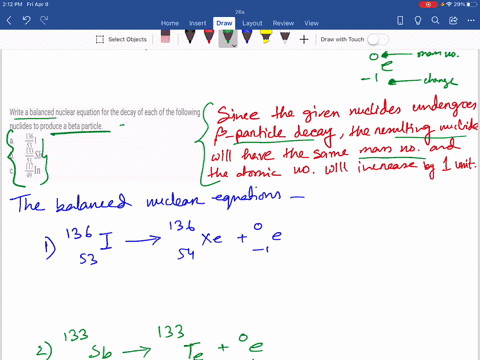 2:12 PM Fri Apr 9
26a
29%
File Home Insert Draw Layout References Review View
Select Objects
Draw with Touch
0 mass no.
e
-1 charge
Write a balanced nuclear equation for the decay of each of the following
nuclides to produce a beta particle.
a. 136 53 I
b. 133 51 Sb
c. In
Since the given nuclides undergoes
β-particle decay, the resulting nuclide
will have the same mass no. and
the atomic no. will increase by 1 unit.
The balanced nuclear equations —
1) 136 53 I → 136 54 Xe + 0 -1 e
2) 133 Sb → 133 Te + 0 e